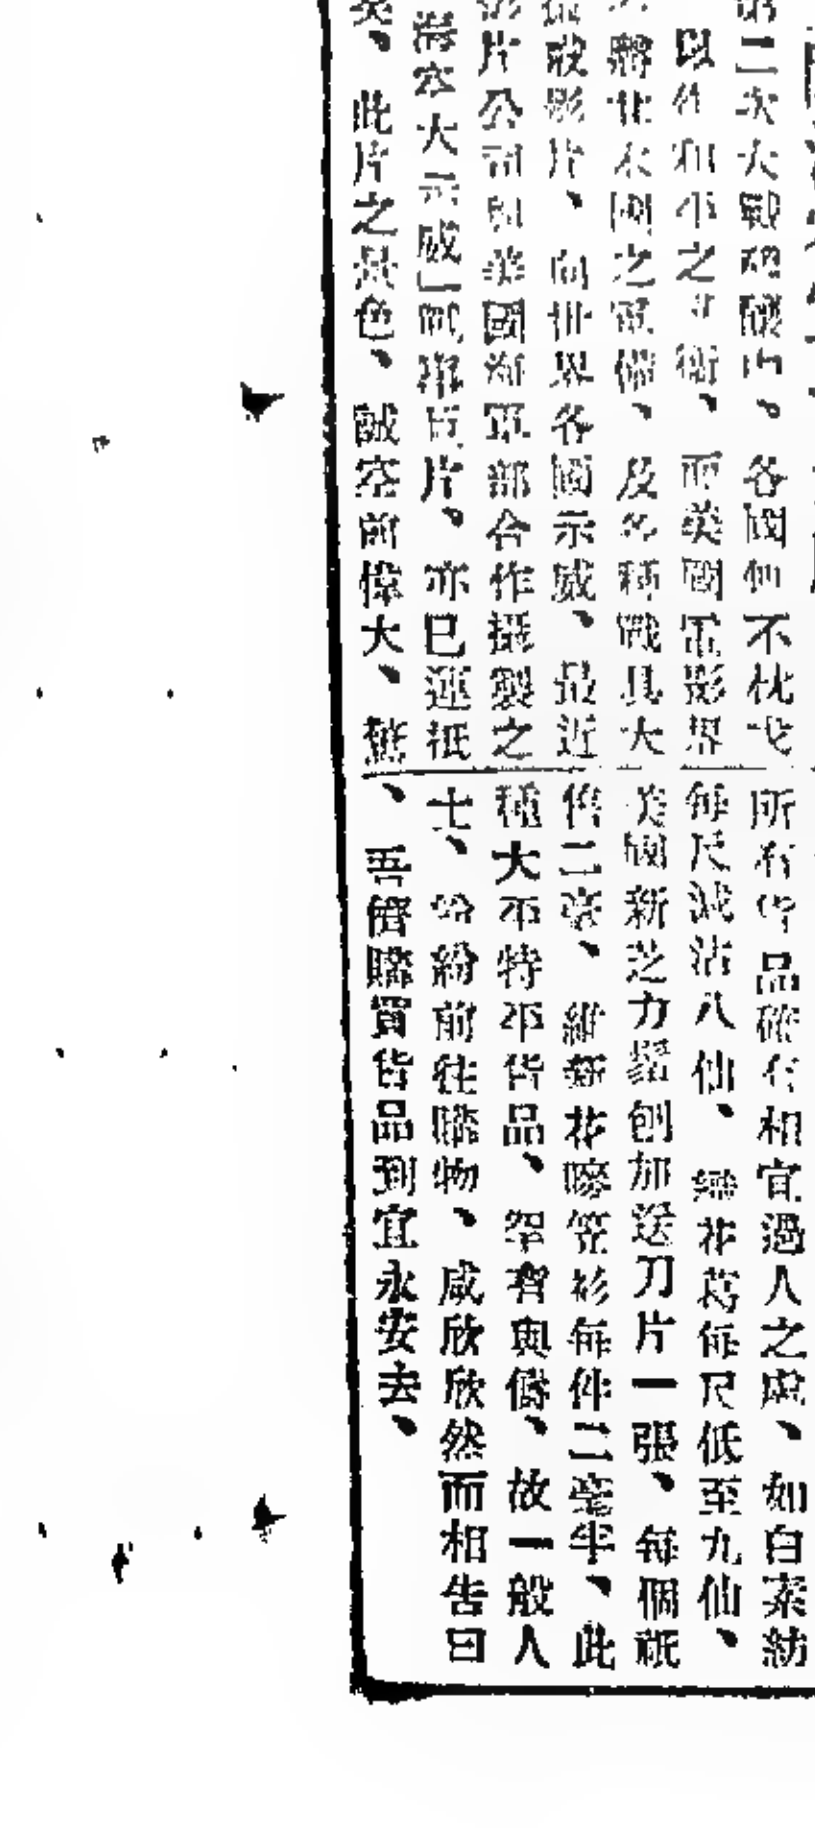 第二次大戰醞釀中、各國無不枕戈
以作和平之互衛、而美國電影界
將其本國之軍備、及各種戰具大
攝影片、向世界各國示威、最近
影片公司與美國海軍部合作攝製之
海空大示威」戰事巨片、亦已運抵
矣、此片之景色、誠空前偉大、驚
所有貨品確有相宜過人之處、如白素紡
每尺減沽八仙、 花葛每尺低至九仙、
美國新芝力 刨加送刀片一張、每個祇
售二毫、維新花嘜笠衫每件二毫半、此
種大不特平貨品、罕有與儔、故一般人
士、紛紛前往購物、咸欣欣然而相告曰
、吾儕購買貨品到宜永安去、